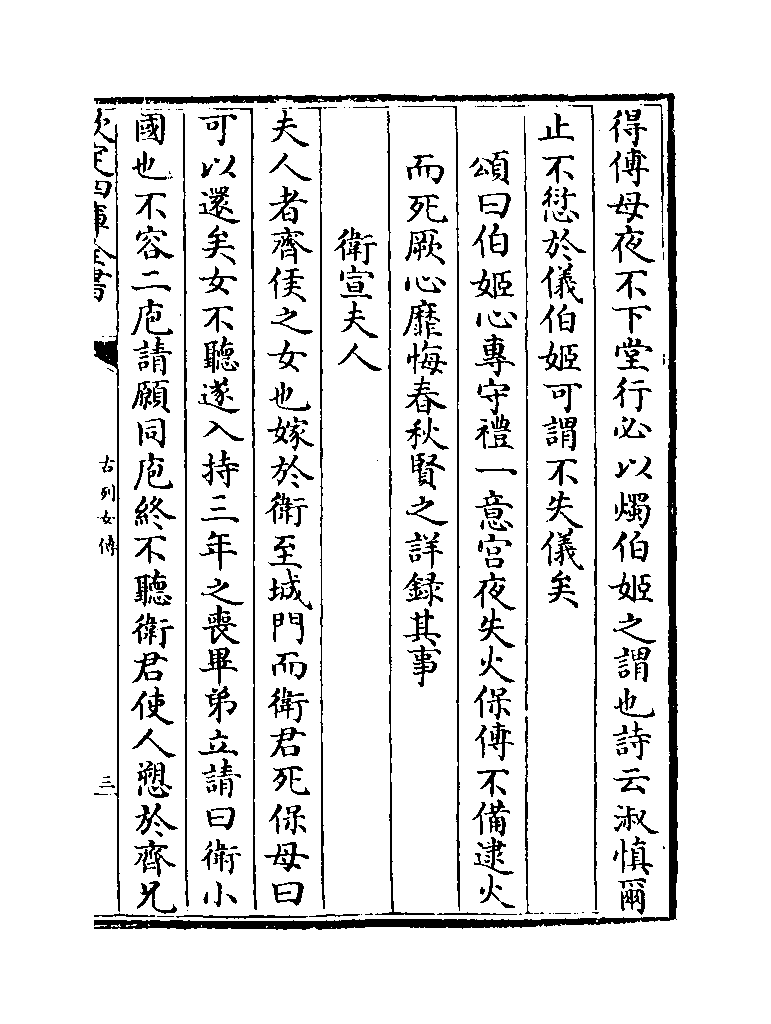 得傅母夜不下堂行必以燭伯姬之謂也詩云淑慎爾
止不愆於儀伯姬可謂不失儀矣
頌曰伯姬心專守禮一意宫夜失火保傅不備逮火
而死厥心靡悔春秋賢之詳録其事
衛宣夫人
夫人者齊侯之女也嫁於衛至城門而衛君死保母曰
可以還矣女不聽遂入持三年之喪畢弟立請曰衛小
國也不容二庖請願同庖終不聽衛君使人愬於齊兄
欽定四庫全書
古列女傳
三